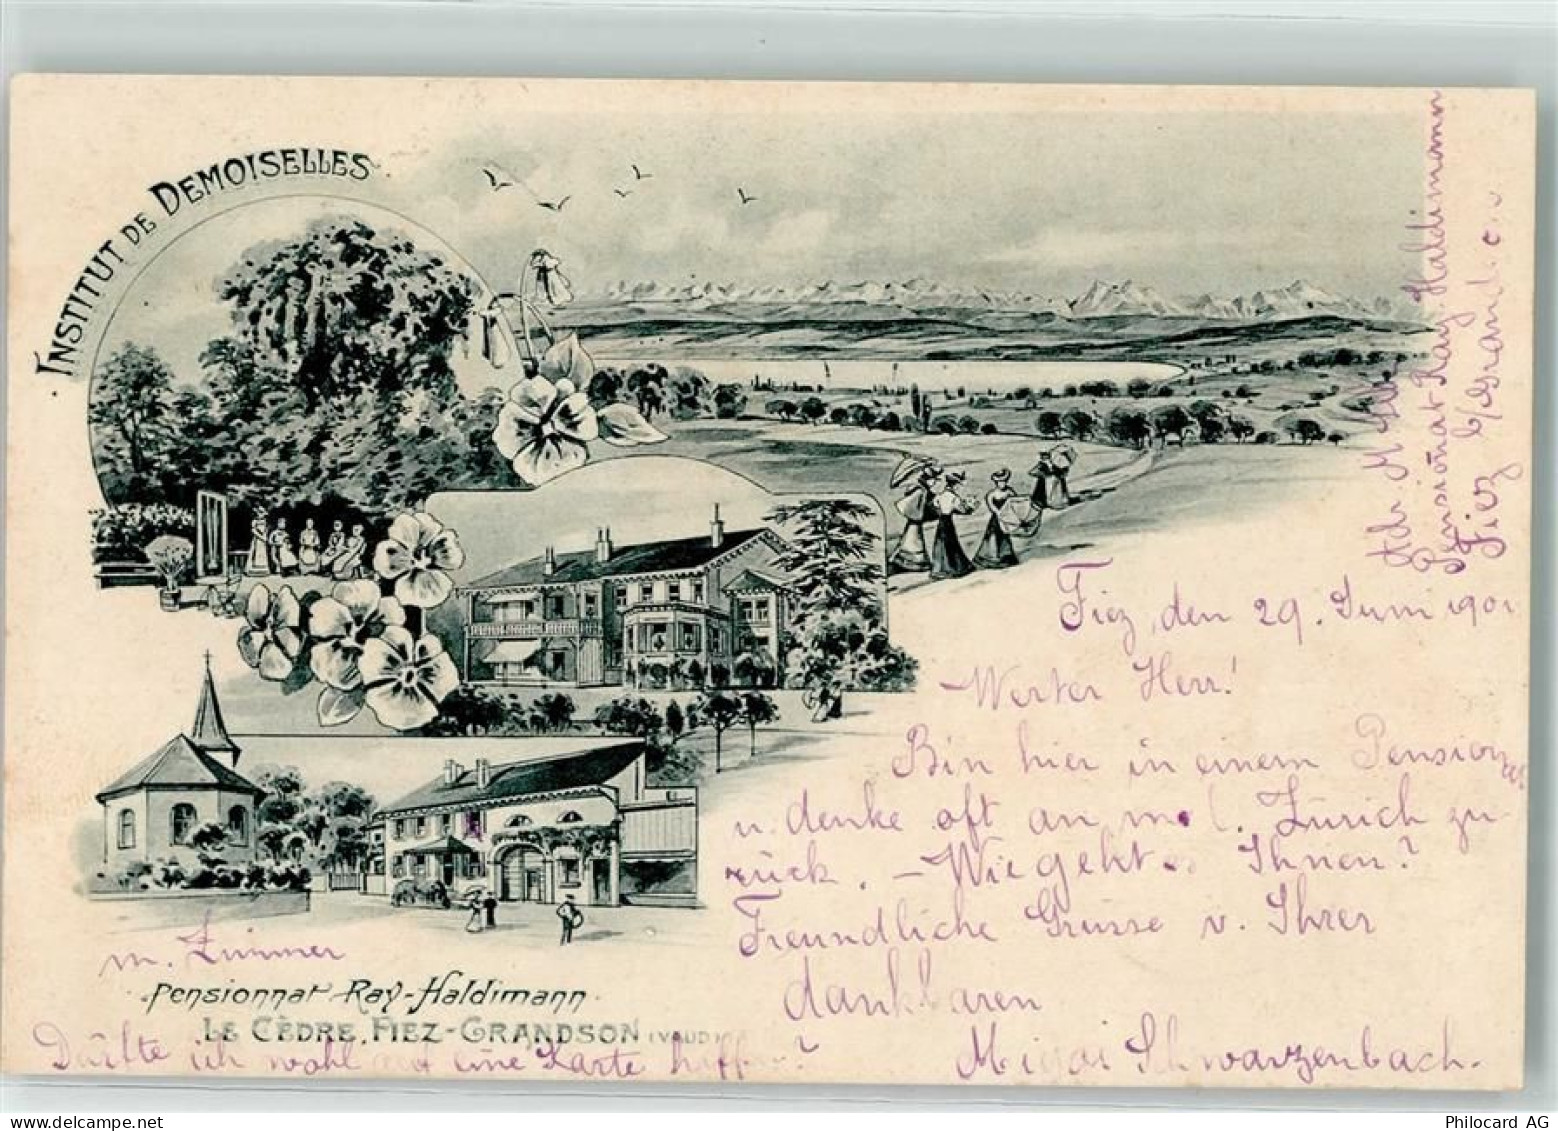 INSTITUT DE DEMOISELLES
Adr. M
Pensionat Ray. Haldimann
Fiez b/Grand
Fiez, den 29. Juni 1901
Werter Herr!
Bin hier in einem Pensionat
u. denke oft an m. l. Zürich zu
rück. – Wie geht es Ihnen?
Freundliche Grüsse v. Ihrer
dankbaren
Schwarzenbach.
m. Zimmer
Pensionnat Ray-Haldimann
LE CÈDRE, FIEZ-GRANDSON (VAUD)
Dürfte ich wohl auf eine Karte hoffen?
Philocard AG